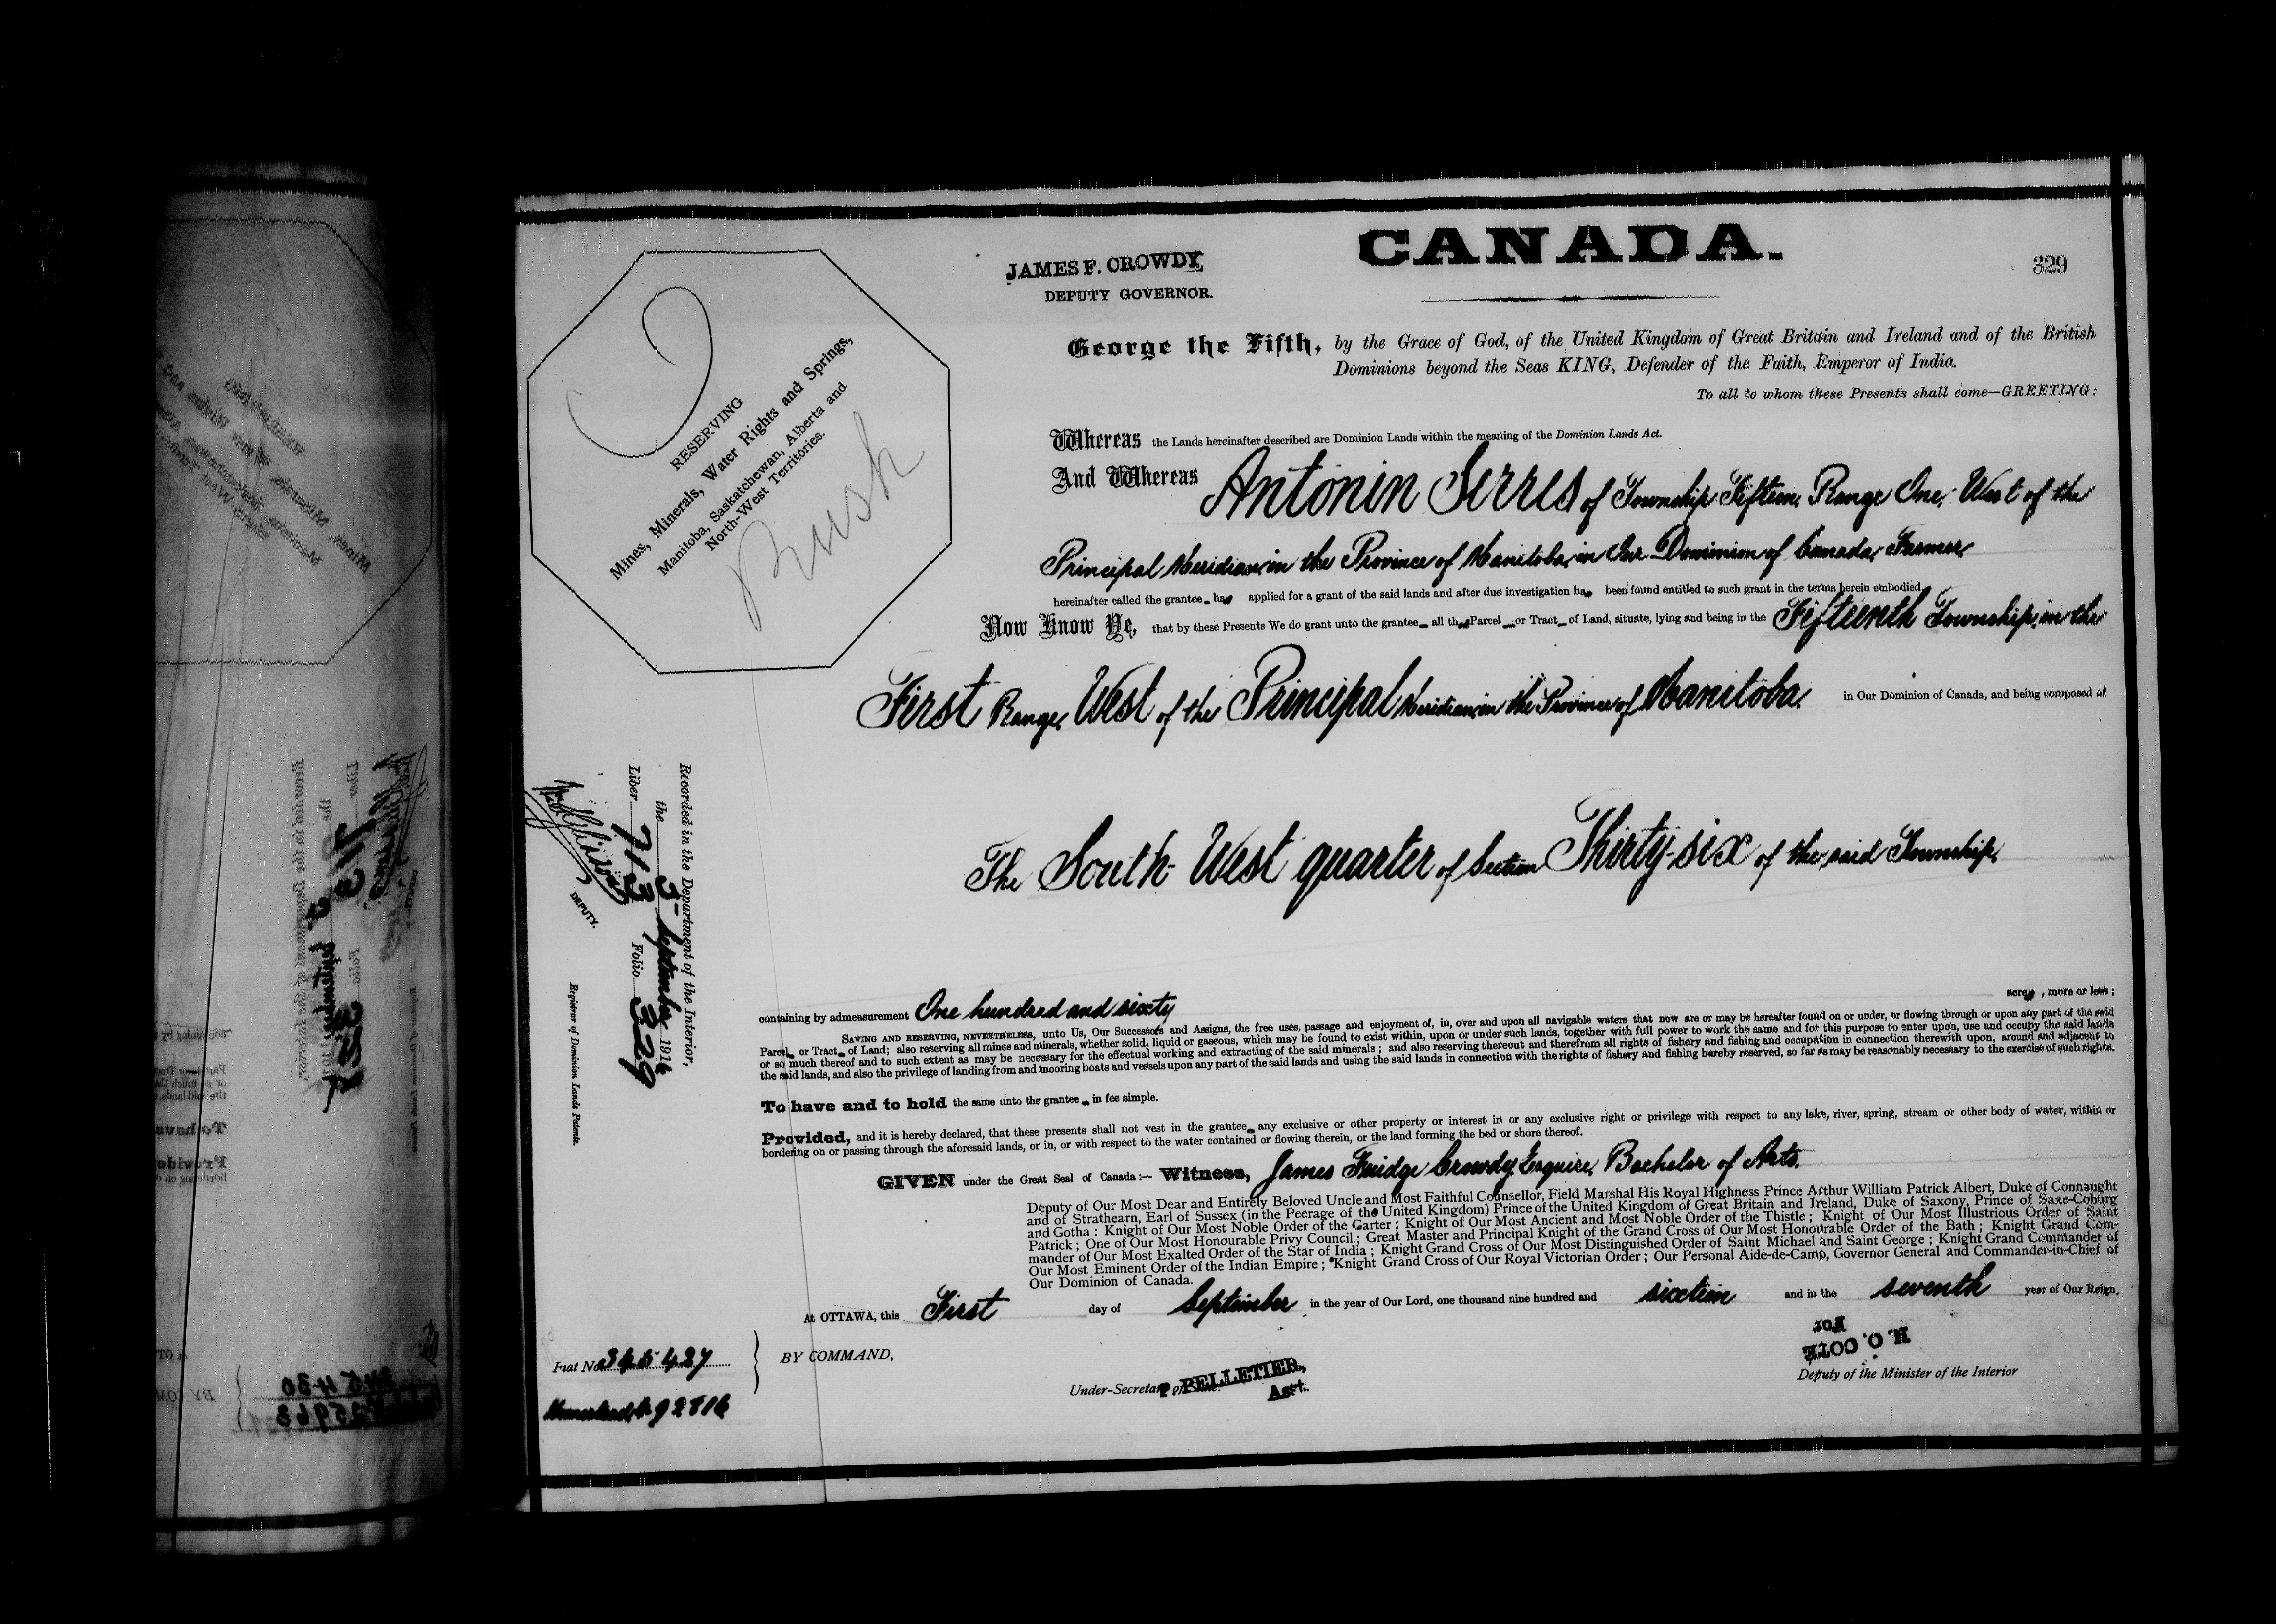 CANADA.
329
JAMES F. CROWDY
DEPUTY GOVERNOR.
RESERVING
Mines, Minerals, Water Rights and Springs,
Manitoba, Saskatchewan, Alberta and
North-West Territories.
Rush
George the Fifth, by the Grace of God, of the United Kingdom of Great Britain and Ireland and of the British
Dominions beyond the Seas KING, Defender of the Faith, Emperor of India.
To all to whom these Presents shall come—GREETING:
Whereas the Lands hereinafter described are Dominion Lands within the meaning of the Dominion Lands Act.
And Whereas Antonin Serres of Township Fifteen, Range One, West of the
Principal Meridian, in the Province of Manitoba, in Our Dominion of Canada, Farmer,
hereinafter called the grantee has applied for a grant of the said lands and after due investigation has been found entitled to such grant in the terms herein embodied.
Now Know Ye, that by these Presents We do grant unto the grantee all that Parcel or Tract of Land, situate, lying and being in the Fifteenth Township, in the
First Range, West of the Principal Meridian, in the Province of Manitoba, in Our Dominion of Canada, and being composed of
The South West quarter of Section Thirty-six of the said Township,
containing by admeasurement One hundred and sixty acres, more or less;
SAVING AND RESERVING, NEVERTHELESS, unto Us, Our Successors and Assigns, the free uses, passage and enjoyment of, in, over and upon all navigable waters that now are or may be hereafter found on or under, or flowing through or upon any part of the said
Parcel or Tract of Land; also reserving all mines and minerals, whether solid, liquid or gaseous, which may be found to exist within, upon or under such lands, together with full power to work the same and for this purpose to enter upon, use and occupy the said lands
or so much thereof and to such extent as may be necessary for the effectual working and extracting of the said minerals; and also reserving thereout and therefrom all rights of fishery and fishing and occupation in connection therewith upon, around and adjacent to
the said lands, and also the privilege of landing from and mooring boats and vessels upon any part of the said lands and using the said lands in connection with the rights of fishery and fishing hereby reserved, so far as may be reasonably necessary to the exercise of such rights.
To have and to hold the same unto the grantee in fee simple.
Provided, and it is hereby declared, that these presents shall not vest in the grantee any exclusive or other property or interest in or any exclusive right or privilege with respect to any lake, river, spring, stream or other body of water, within or
bordering on or passing through the aforesaid lands, or in, or with respect to the water contained or flowing therein, or the land forming the bed or shore thereof.
GIVEN under the Great Seal of Canada:— Witness, James Fuidge Crowdy, Esquire, Bachelor of Arts.
Deputy of Our Most Dear and Entirely Beloved Uncle and Most Faithful Counsellor, Field Marshal His Royal Highness Prince Arthur William Patrick Albert, Duke of Connaught
and of Strathearn, Earl of Sussex (in the Peerage of the United Kingdom) Prince of the United Kingdom of Great Britain and Ireland, Duke of Saxony, Prince of Saxe-Coburg
and Gotha: Knight of Our Most Noble Order of the Garter; Knight of Our Most Ancient and Most Noble Order of the Thistle; Knight of Our Most Illustrious Order of Saint
Patrick; One of Our Most Honourable Privy Council; Great Master and Principal Knight of the Grand Cross of Our Most Honourable Order of the Bath; Knight Grand Com-
mander of Our Most Exalted Order of the Star of India; Knight Grand Cross of Our Most Distinguished Order of Saint Michael and Saint George; Knight Grand Commander of
Our Most Eminent Order of the Indian Empire; Knight Grand Cross of Our Royal Victorian Order; Our Personal Aide-de-Camp, Governor General and Commander-in-Chief of
Our Dominion of Canada.
At OTTAWA, this First day of September in the year of Our Lord, one thousand nine hundred and sixteen and in the seventh year of Our Reign.
BY COMMAND,
Under-Secretary of State.
P. PELLETIER,
Asst.
For
N. O. COTE
Deputy of the Minister of the Interior
Fiat No 345427
Homestead 692816
Recorded in the Department of the Interior,
the 5- September 1916
Liber 713 Folio 329
DEPUTY.
Registrar of Dominion Lands Patents.